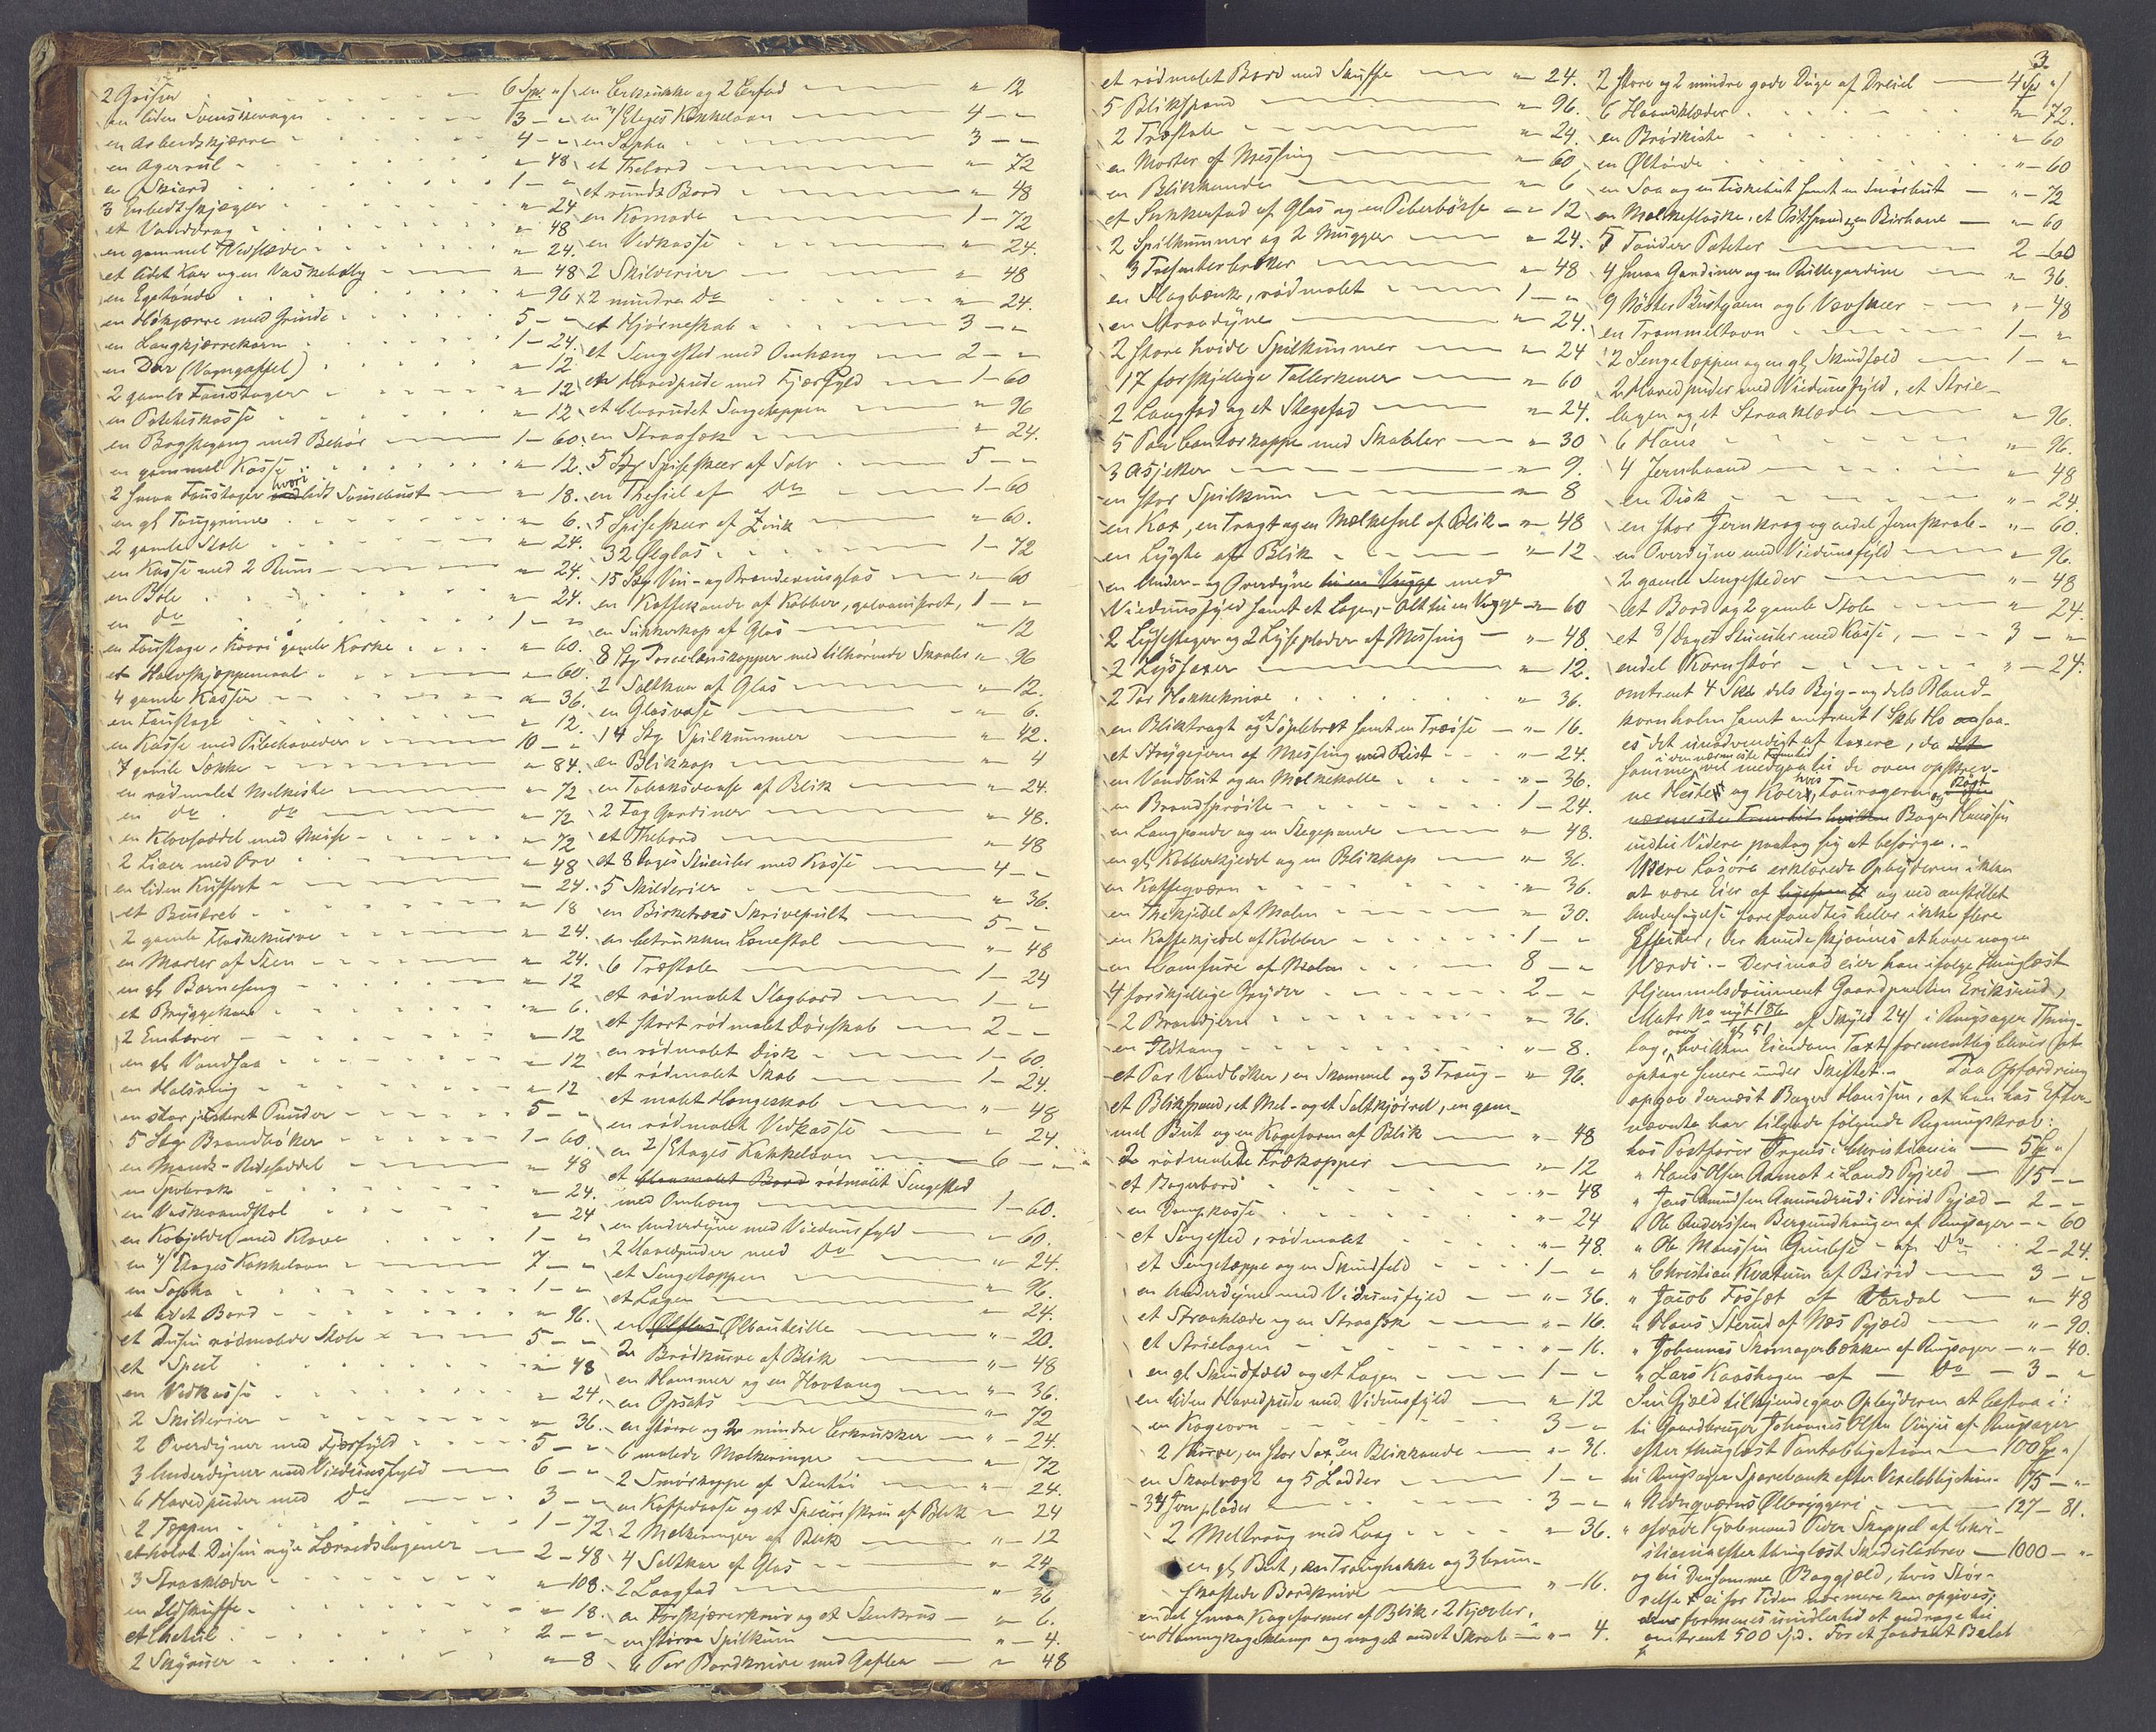 2 Griser 6 Spd. "/
en liden Svenskevogn 3 - "
en Arbeidskjærre 4 - "
en Agerrul " - 48
en Skiærd 1 - "
3 Enbedtskjægler " - 24
et Vanddrag " - 48
en gammel Vedslæde " - 24.
et lidet Kar og en Vaskebalg " - 48
en Egetønde " - 96
en Høkjærre med Grinde 5 - "
en Langkjærrekarm 1 - 24.
en Drær (Vogngaffel) " - 12
2 gamle Foustager " - 12
en Poteteskasse " - 12
en Bogstegang med Behør 1 - 60.
en gammel Kasse " - 12.
2 smaa Foustager hvori lidt Sennebust " - 18.
en gl Touggrime " - 6.
2 gamle Stole " - 24.
en Kasse med 2 Rum " - 24.
en Bøle " - 24.
en do 1 - "
en Foustage, hvori gamle Korke " - 60.
et Halvskjæppemaal " - 60.
4 gamle Kasser " - 36.
en Foustage " - 12.
en Kasse med Pibehoveder 10 - "
7 gamle Sække " - 84.
en rødmalet Melkiste " - 72
en do do " - 72
en Kløvsaddel med Meise " - 72
2 Liaer med Orv " - 48
en liden Kuffert " - 24.
et Boustreb " - 18
2 gamle Flaskekurve " - 24.
en Morter af Sten " - 24.
en gl Barneseng " - 12
et Bryggekar " - 6.
2 Embarer " - 12
en gl Vandsaa " - 12
en Halsring " - 12
en stor justeret Punder 5 - "
5 Stkr Brandbøker 1 - 60.
en Mands-Ridesaddel " - 48
en Spobrak " - 24.
en Vaskevandstol " - 24
en Kobjelde med Klave 1 - "
en 4/ Etages Kakkelovn 7 - "
en Sopha 1 - "
et lidet Bord " - 96.
et Dusin rødmalede Stole 5 - "
et Speil " - 48
en Vedkasse " - 24.
2 Skilderier " - 36.
2 Overdyner med Fjærfyld 5 - "
3 Underdyner med Viedunsfyld 6 - "
6 Hovedpuder med Do 3 - "
2 Tæpper 1 - 72
et halvt Dusin nye Lærredslagener 2 - 48
3 Straaklæder " - 108.
en Ildskuffe " - 18.
et Chatul 2 - "
2 Skyruer " - 8
en Lerkrukke og 2 Lerfad " 12
en 4/ Etages Kakkelovn 4 - "
en Sopha 3 - "
et Thebord " - 72
et rundt Bord " - 48
en Komode 1 - 72
en Vedkasse " 24.
2 Skilderier " 48
2 mindre Do " 24.
et Hjørneskab 3 - "
et Sengested med Omhæng 2 - "
en Hovedpude med Fjærfyld 1 - 60
et Sengetæppen " - 96
en Straasæk " 24.
5 Stkr Spiseskeer af Sølv 5 - "
en Thesiel af Do 1 - 60
5 Spiseskeer af Zink " - 60.
32 Ølglas 1 - 72
15 Stkr Vin- og Brændevinsglas " 60
en Kaffekande af Kobber, galvaniseret, 1 - "
en Sukkerkop af Glas " 12
8 Stkr Porcelainskopper med tilhørende Skaaler " 96
2 Saltkar af Glas " 12.
en Glasvase " 6.
14 Stkr Spilkummer " 42.
en Blikkop " 4
en Tobaksdaase af Blik " 24.
2 Fag Gardiner " 48.
et Thebord " 48
et 8 Dages Stueuhr med Kasse 4 - "
5 Skilderier " 36.
en Birketræs Skrivepult 5 - "
en betrukken Lænestol " - 48
6 Træstole 1 - 24
et rødmalet Slagbord 1 - "
et stort rødmalet Dørskab 2 - "
en rødmalet Disk 1 - 60.
et rødmalet Skab 1 - 24.
et malet Hængeskab " - 48
en rødmalet Vedkasse " 24.
en 2/ Etages Kakkelovn 6 - "
et blaamalet Bord rødmalet Sengested
med Omhæng 1 - 60.
en Underdyne med Viedunsfyld " - 60.
2 Hovedpuder med Do " 24.
et Sengetæppen " 96.
et Lagen " 24.
en Ølflas Ølbouteille " - 20.
2 Brødkurve af Blik " - 48
en Hammer og en Hovtang " - 36.
en Opsats " - 72
en større og 2 mindre Lerkrukker " - 24.
6 malede Malkeringer " 72
2 Smørkopper af Stentøi " - 24.
en Kaffedaase og et Specieskrin af Blik " 24
2 Melkeringer af Blik " - 12
4 Saltkar af Glas " 24
2 Laagfad " 36
en Forskjærerkniv og et Stenkrus " 6.
en større Spilkum " - 4.
6 Par Bordknive med Gafler " 48
3
et rødmalet Bord med Skuffe " 24.
5 Blikspand " 96.
2 Træstole " 24.
en Morter af Messing " 60
en Blikkande " - 6
et Sukkerfad af Glas og en Peberbøsse " - 12
2 Spilkummer og 2 Mugger " - 24.
3 Presenterbrikker " 48
en Slagbænk, rødmalet 1 - "
en Straadyne " 24.
2 store hvide Spilkummer " 24
17 forskjellige Tallerkener " - 60
2 Laagfad og et Stegefad " - 24.
5 Par Contorkoppe med Skaaler " - 30
3 Asjetter " - 9.
en stor Spilkum " 8
en Kar, en Tragt og en Melkesiel af Blik " - 48
en Lygte af Blik " - 12
en Under- og Overdyne til en Vugge med
Viedunsfyld samt et Lagen, - alt til en Vugge " 60
2 Lysestager og 2 Lyseplader af Messing " - 48.
2 Lyssaxer " - 12.
2 Par Hakkeknive " - 36.
en Bliktragt og et Soplebret samt en Træøse " - 16.
et Strygejern af Messing med Rist " - 24.
en Vandbut og en Melkekolle " - 36.
en Brandsprøite 1 - 24.
en Langpande og en Stegepande " - 48.
en gl Kobberkjedel og en Blikkop " - 36.
en Kaffeqværn " - 36.
en Thekjedel af Malm " - 30.
en Kaffekjedel af Kobber 1 - "
en Comfure af Malm 8 - "
4 forskjellige Gryder 2 - "
2 Brandjern " - 36.
en Ildtang " - 8.
et Par Vandbøker, en Skammel og 3 Traug " - 96.
et Blikspand, et Mel- og et Saltkjørrel, en gam-
mel But og en Kageform af Blik " - 48
2 rødmalede Trækopper " - 12
et Bagerbord " - 48
en Dampkasse " - 24
et Sengested, rødmalet " - 48.
et Sengetæppe og en Skindfeld 1 - "
en Underdyne med Viedunsfyld " - 36.
et Straaklæde og en Straasæk " - 16.
et Strielagen " - 16.
en gl Skindfeld og et Lagen 1 - "
en liden Hovedpude med Viedunsfyld " - 12
en Kogeovn 3 - "
2 Kurve, en stor Sax og en Blikkande " - 36.
en Skaalvægt og 5 Lodder 1 - "
34 Jernplader 3 - "
2 Meltraug med Laag " - 36.
en gl But, en Traughakke og 3 brun-
skaftede Bordknive " - 16.
endel smaa Kageformer af Blik, 2 Kjævler,
en Honningkageklamp og noget andet Skrab " - 4.
2 store og 2 mindre gode Duge af Dreiel 4 Sp "/
6 Haandklæder " - 72.
en Brødkiste " - 60
en Øltønde " - 60
en Saa og en Fiskebut samt en Smørbut " - 72
en Melkeflaske, et Ostspand og en Bærhane " - 60
5 Tønder Poteter 2 - 60
4 smaa Gardiner og en Rullegardine " 36.
9 Nøster Bustgarn og 6 Vævskeer " - 48
en Trommelhovn 1 - "
2 Sengetæppen og en gl Skindfeld 1 - "
2 Hovedpuder med Viedunsfyld, et Strie-
lagen og et Straaklæde " - 96.
6 Høns " - 96.
4 Jernbaand " - 48
en Disk " - 24.
en stor Jernkrog og endel Jernskrab " - 60.
en Overdyne med Viedunsfyld " 96.
2 gamle Sengesteder " - 48
et Bord og 2 gamle Stole " 24.
et 8/ Dages Stueuhr med Kasse, 3 - "
endel Kornstør " - 24.
omtrent 4 Skd. dels Byg- og dels Bland-
kornhalm samt omtrent 1 Skd. Hø ansaa-
es det unødvendigt at taxere, da det
samme i den nærmeste Fremtid vil medgaa til de oven opskrev-
ne Heste og Køer, hvis Fouragering og Røgt
nærmeste Fremtid hvilken Bager Hanssen
indtil Videre paatog sig at besørge.-
Mere Løsøre erklærede Opbyderen ikke
at være Eier af og ved anstillet
Undersøgelse forefandtes heller ikke flere
Effecter, der kunde skjønnes at have nogen
Værdi.- Derimod eier han ifølge thinglæst
Hjemmelsdocument Gaardparten Eriksrud,
Matr. No nyt 156 gl. 51 af Skyld 24/ i Ringsager Thing-
lag, over hvilken Eiendom Taxt formentlig bliver at
optage senere under Skiftet.- Paa Opfordring
opgav dernæst Bager Hanssen, at han hos Efter-
nævnte har tilgode følgende Regningskrav:
hos Postfører Ørgens i Christiania 5 Sp "/
" Hans Olsen Aamot i Lands Pgjeld 15 - "
" Jens Amundsen Amundrud i Birid Pgjæld 2 - "
" Ole Anderssen Bergundhaugen af Ringsager " 60
" Ole Monssen Grinlse af Do 2 - 24.
" Christian Kvatum af Birid 3 - "
" Jacob Fossæt af Vardal " - 48
" Hans Sterud af Næs Pgjæld " - 90.
" Johannes Skomagerbækken af Ringsager " - 40.
" Lars Kaashagen af Do 3 - "
Sin Gjæld tilkjendegav Opbyderen at bestaa i:
til Gaardbruger Johannes Olsen Vinju af Ringsager
efter thinglæst Pantobligation 100 Sp "/
til Ringsager Sparebank efter Vexelobligation 175 - "
" Nedrqværns Ølbryggeri 127 - 81.
" afdøde Kjøbmand Peder Skappel af Chri-
stiania efter thinglæst Skadesløsbrev 1000 - "
og til Densamme Boggjæld, hvis Stør-
relse ei for Tiden nærmere kan opgives,
men formenes imidlertid at andrage til
omtrent 500 Spd. For et saadant Beløb